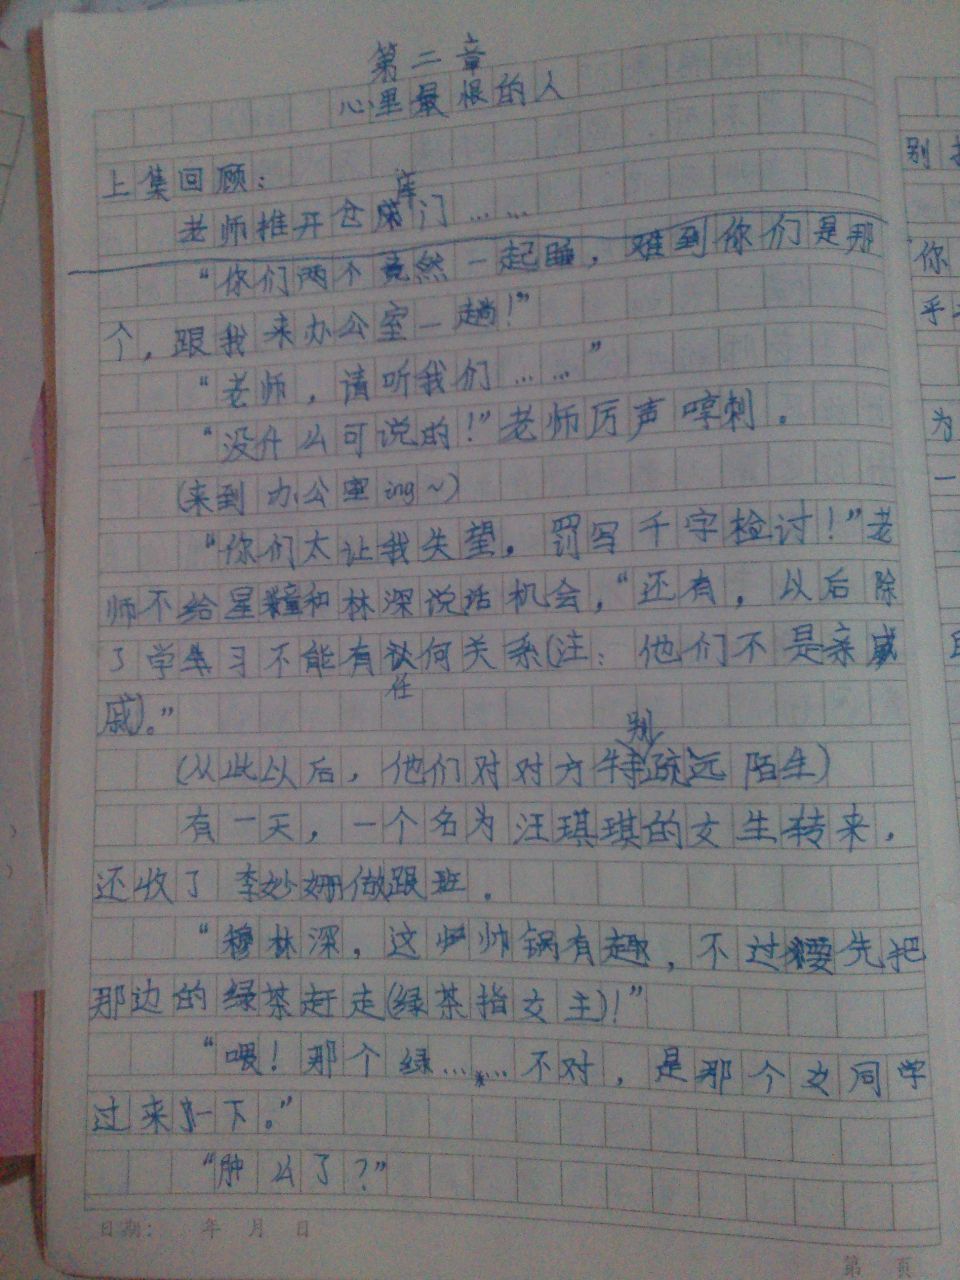 第二章
心里最恨的人
上集回顾：
老师推开仓库门……
“你们两个竟然一起睡，难到你们是那
个，跟我来办公室一趟！”
“老师，请听我们……”
“没什么可说的！”老师厉声啍刺。
(来到办公室ing~)
“你们太让我失望。罚写千字检讨！”老
师不给星瞳和林深说话机会，“还有，以后除
了学习不能有任何关系(注：他们不是亲戚
戚)。”
(从此以后，他们对对方特别疏远陌生)
有一天，一个名为汪琪琪的女生转来，
还收了李妙姗做跟班。
“穆林深，这帅锅有趣，不过要先把
那边的绿茶赶走(绿茶指女主)！”
“喂！那个绿……不对，是那个女同学
过来一下。”
“肿么了？”
日期： 年 月 日
第 页
别
你
乎
为
一